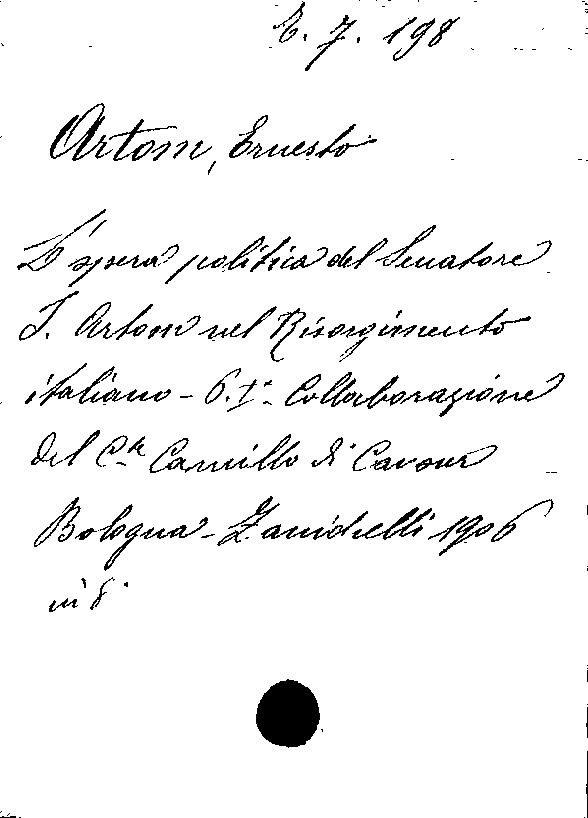 E. 7. 198
Artom, Ernesto
L'opera politica del Senatore
I. Artom nel Risorgimento
italiano - P. Iª Collaborazione
del C.te Camillo di Cavour
Bologna - Zanichelli 1906
in 8°